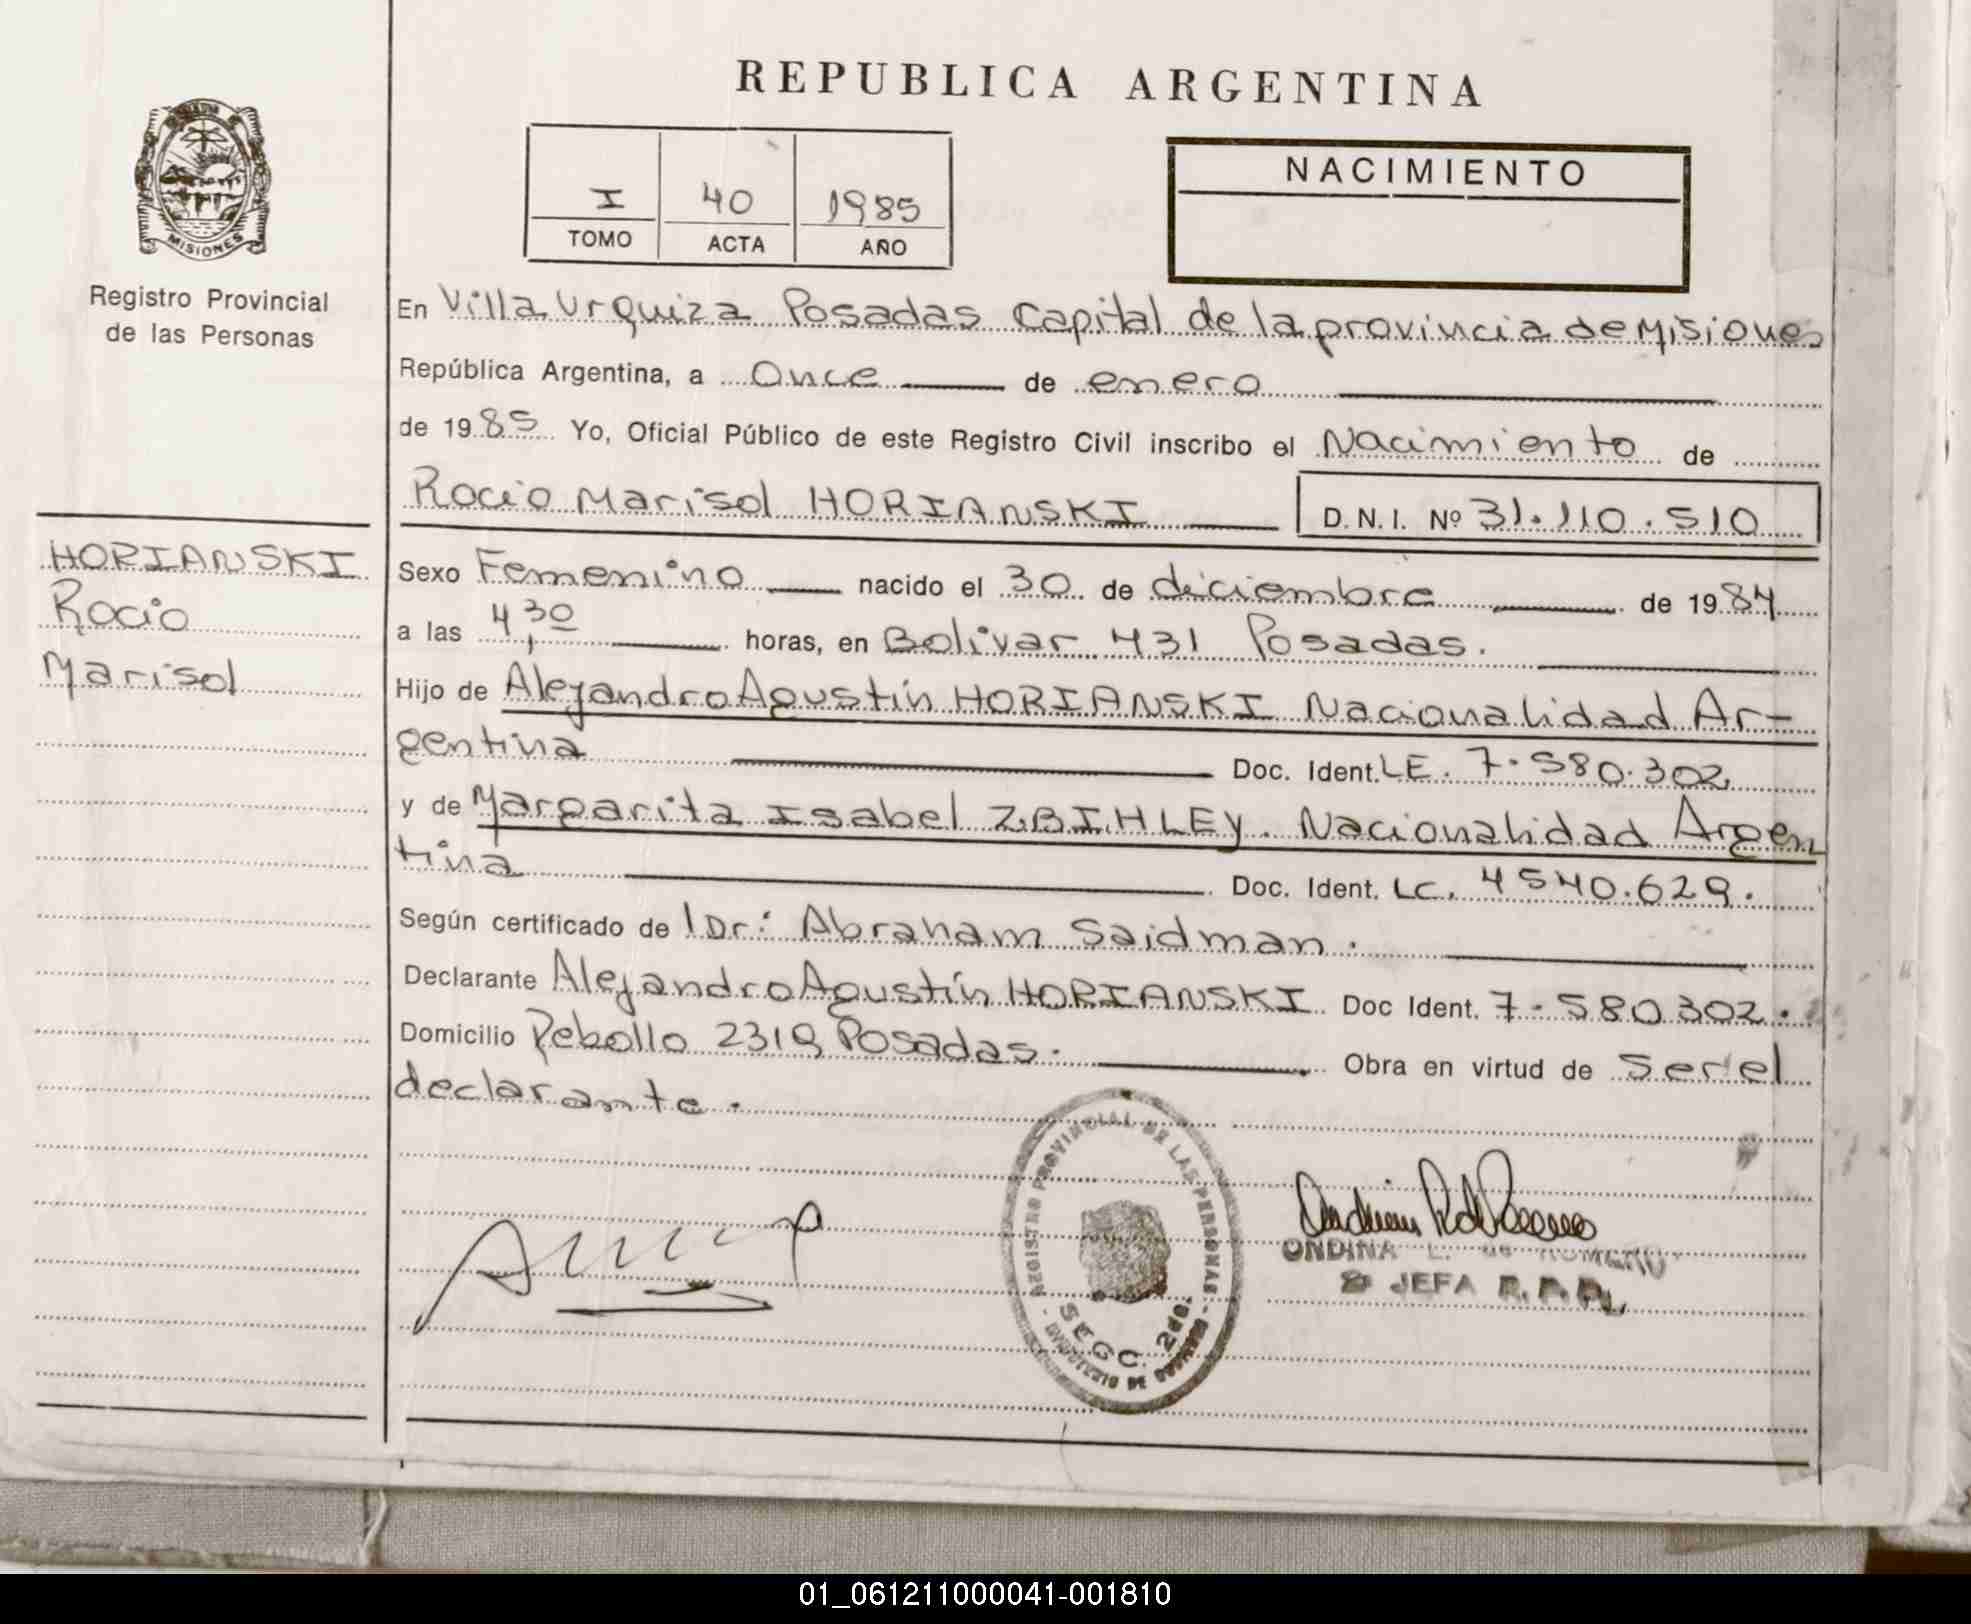 REPUBLICA ARGENTINA
MISIONES
Registro Provincial
de las Personas
I 40 1985
TOMO ACTA AÑO
NACIMIENTO
HORIANSKI
Rocio
Marisol
En Villa Urquiza Posadas Capital de la provincia de Misiones
República Argentina, a once de enero
de 1985 Yo, Oficial Público de este Registro Civil inscribo el Nacimiento de
Rocio Marisol HORIANSKI D.N.I. Nº 31.110.510
Sexo Femenino nacido el 30 de diciembre de 1984
a las 4,30 horas, en Bolivar 431 Posadas.
Hijo de Alejandro Agustín HORIANSKI Nacionalidad Ar-
gentina Doc. Ident. LE. 7.580.302
y de Margarita Isabel ZBIHLEY. Nacionalidad Argen
tina Doc. Ident. LC. 4540.629.
Según certificado de l Dr: Abraham Saidman.
Declarante Alejandro Agustín HORIANSKI Doc Ident. 7.580302.
Domicilio Rebollo 2319 Posadas. Obra en virtud de ser el
declarante.
REGISTRO PROVINCIAL DE LAS PERSONAS
SECC. 2da.
MINISTERIO DE GOBIERNO
ONDINA L. de ROMERO
JEFA R.P.P.
01_061211000041-001810